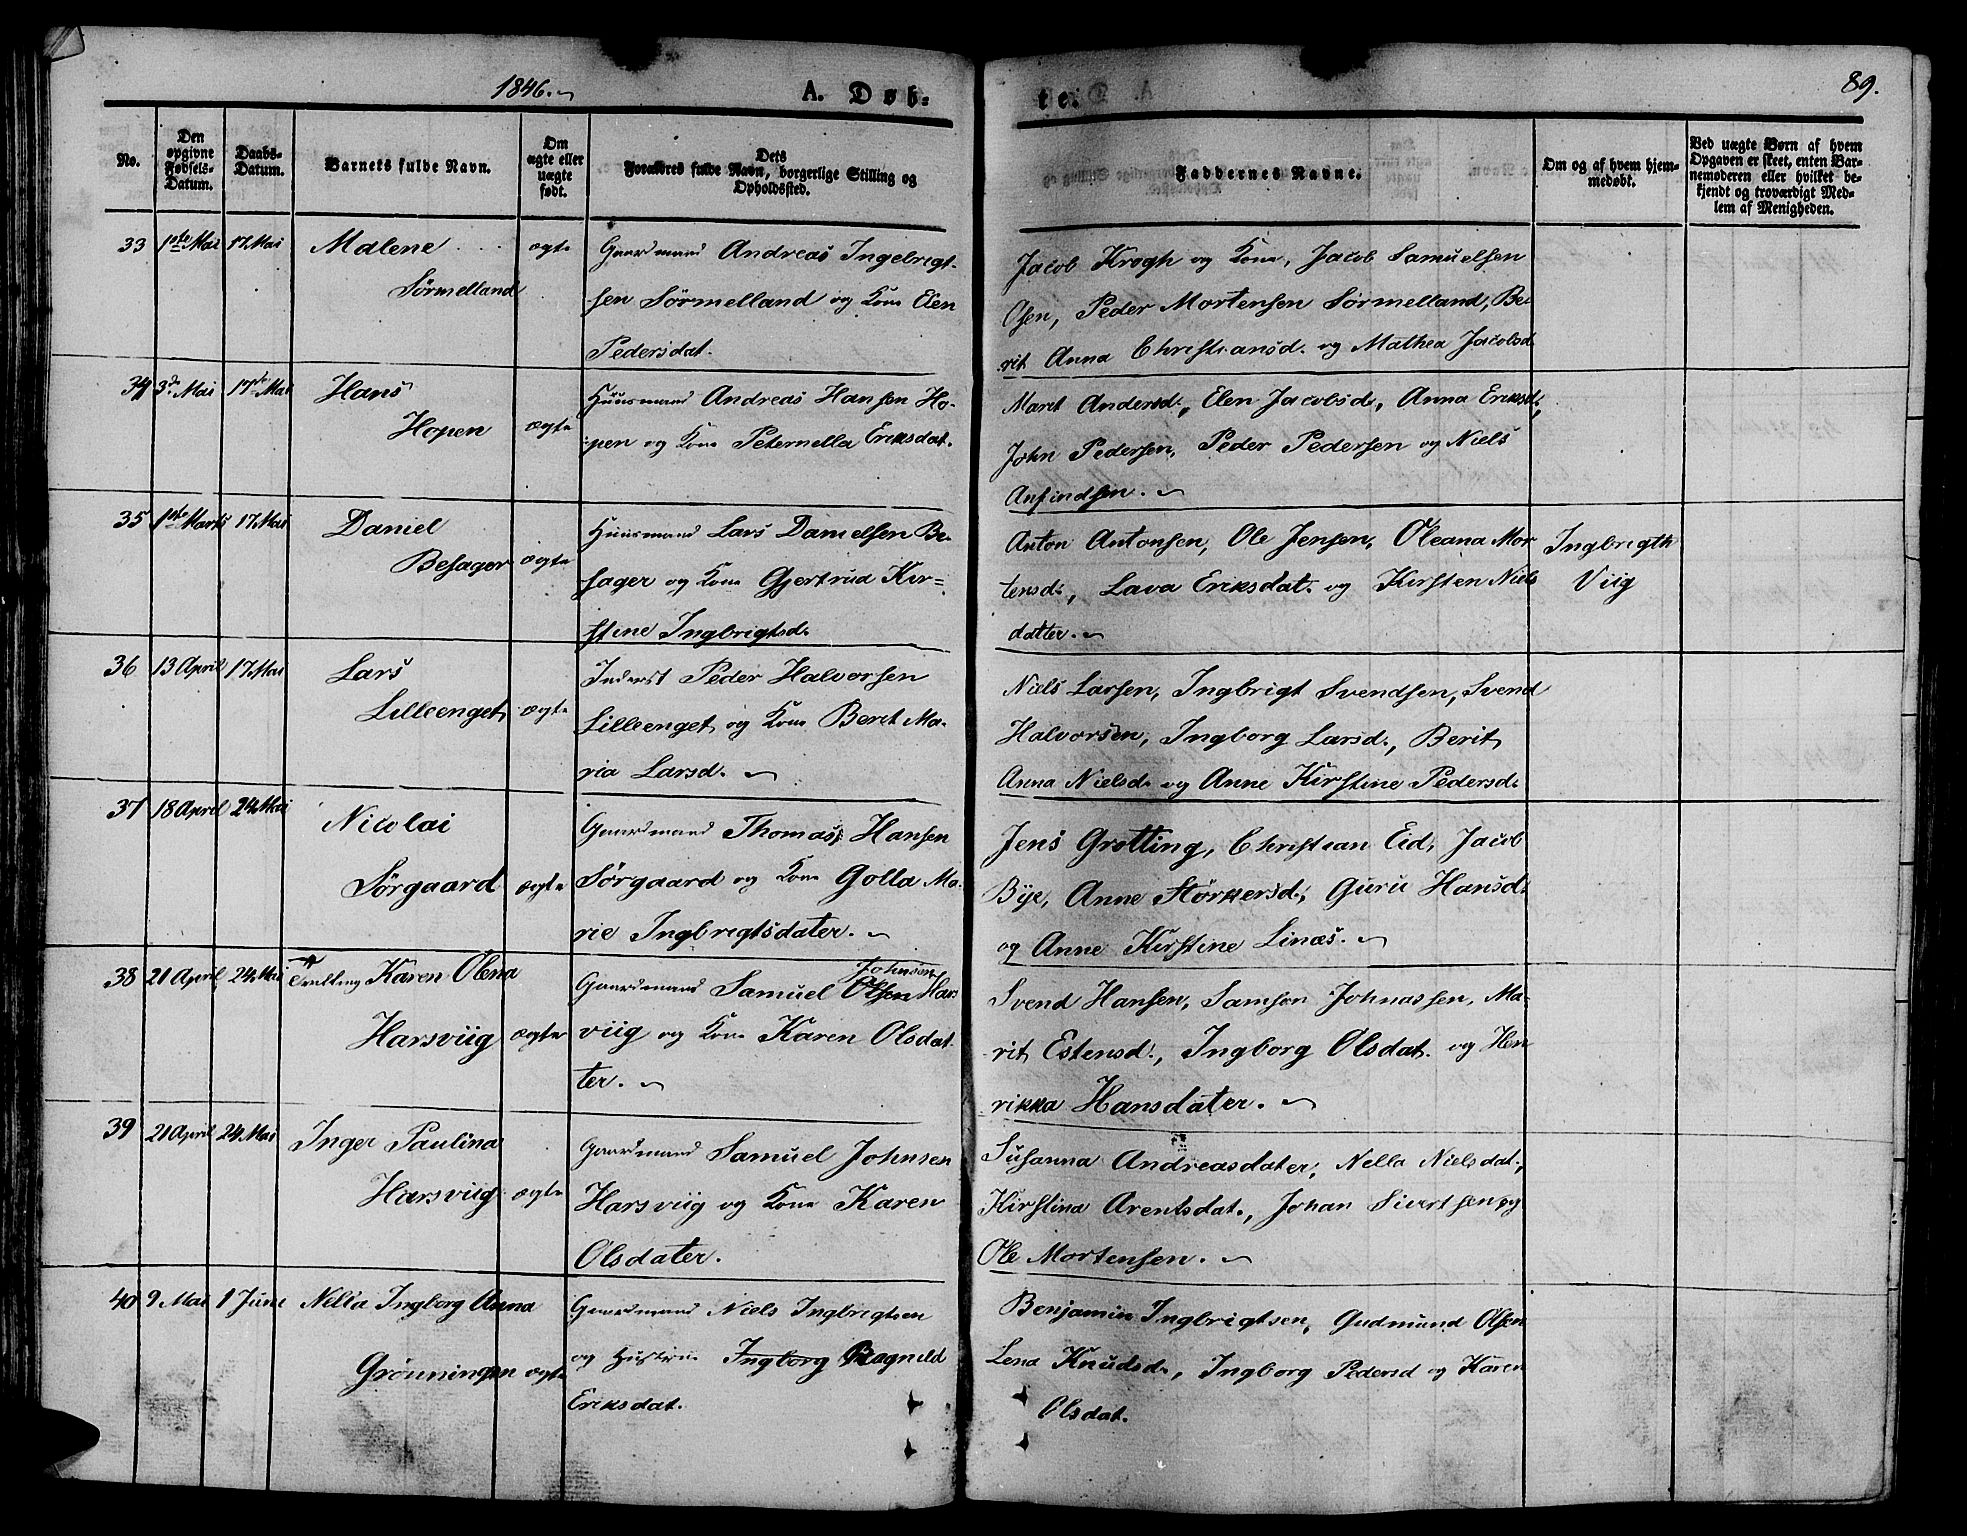 1846. A. Døb-
te. 89.
No.
Den opgivne Fødsels-Datum.
Daabs-Datum.
Barnets fulde Navn.
Om ægte eller uægte født.
Dets Forældres fulde Navn, borgerlige Stilling og Opholdssted.
Faddernes Navne.
Om og af hvem hjem-
medøbt.
Ved uægte Børn af hvem
Opgaven er skeet, enten Bar-
nemoderen eller hvilket be-
kjendt og troværdigt Med-
lem af Menigheden.
33 1ste Mai 17 Mai Malene ægte Gaardmand Andreas Ingebrigt-
Sørmelland sen Sørmelland og Kone Elen
Pedersdat.
Jacob Krogh og Kone, Jacob Samuelsen
Osen, Peder Mortensen Sørmelland, Be-
rit Anna Christiansd. og Mathea Jacobsd.
34 3de Mai 17de Mai Hans Huusmand Andreas Hansen Ho-
Hopen ægte pen og Kone Peternella Eriksdat.
Maret Andersd., Elen Jacobsd., Anna Eriksd.,
John Pedersen, Peder Pedersen og Niels
Anfindsen.
35 1ste Marts 17 Mai Daniel Huusmand Lars Danielsen Be-
Besager ægte sager og Kone Gjertrud Kir-
stine Ingbrigtsd.
Anton Antonsen, Ole Jensen, Oleana Mor Ingbrigth
tensd., Lava Eriksdat. og Kirsten Niels Viig
datter.
36 13 April 17 Mai Lars Inderst Peder Halvorsen
Lilleenget ægte Lilleenget og Kone Beret Ma-
ria Larsd.
Niels Larsen, Ingbrigt Svendsen, Svend
Halvorsen, Ingborg Larsd., Berit
Anna Nielsd. og Anne Kirstine Pedersd.
37 18 April 24 Mai Nicolai Gaardmand Thomas Hansen
Sørgaard ægte Sørgaard og Kone Golla Ma-
rie Ingbrigtsdater.
Jens Grøtting, Christian Eid, Jacob
Bye, Anne Størkersd., Guru Hansd.
og Anne Kirstine Linæs.
38 21 April 24 Mai Tvilling Karen Olena Gaardmand Samuel Olsen Johnsen Hars
Harsviig ægte viig og Kone Karen Olsdat-
ter.
Svend Hansen, Samson Johnassen, Ma-
rit Estensd., Ingborg Olsdat. og Hen
rikka Hansdater.
39 21 April 24 Mai Inger Paulina Gaardmand Samuel Johnsen
Harsviig ægte Harsviig og Kone Karen
Olsdater.
Susanna Andreasdater, Nella Nielsdat.,
Kirstina Arentsdat., Johan Sivertsen og
Ole Mortensen.
40 9 Mai 1 Juni Nella Ingborg Anna Gaardmand Niels Ingbrigtsen
Grønningen ægte og Hustrue Ingborg Ragnild
Eriksdat.
Benjamin Ingbrigtsen, Gudmund Olsen
Lena Knudsd., Ingborg Pedersd og Karen
Olsdat.